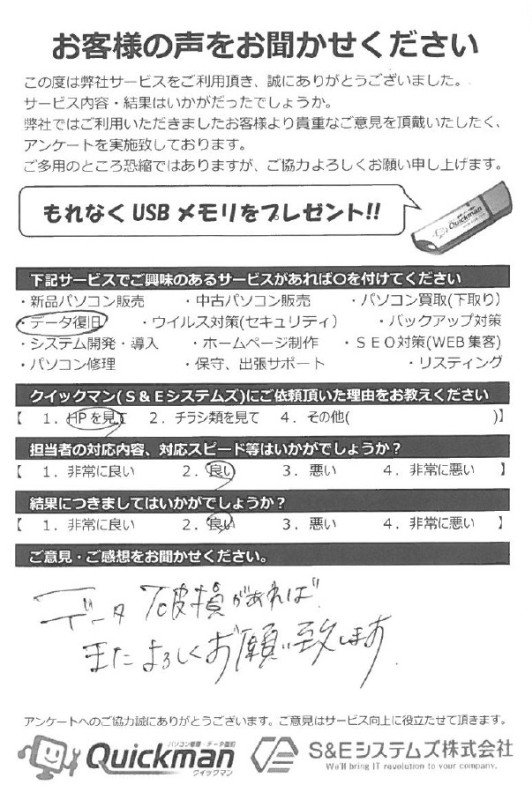 お客様の声をお聞かせください
この度は弊社サービスをご利用頂き、誠にありがとうございました。
サービス内容・結果はいかがだったでしょうか。
弊社ではご利用いただきましたお客様より貴重なご意見を頂戴いたしたく、
アンケートを実施致しております。
ご多用のところ恐縮ではありますが、ご協力よろしくお願い申し上げます。
もれなくUSBメモリをプレゼント!!
Quickman
下記サービスでご興味のあるサービスがあれば〇を付けてください
・新品パソコン販売 ・中古パソコン販売 ・パソコン買取(下取り)
・データ復旧 ・ウイルス対策(セキュリティ) ・バックアップ対策
・システム開発・導入 ・ホームページ制作 ・SEO対策(WEB集客)
・パソコン修理 ・保守、出張サポート ・リスティング
クイックマン(S&Eシステムズ)にご依頼頂いた理由をお教えください
【 1. HPを見て 2. チラシ類を見て 4. その他( )】
担当者の対応内容、対応スピード等はいかがでしょうか？
【 1. 非常に良い 2. 良い 3. 悪い 4. 非常に悪い 】
結果につきましてはいかがでしょうか？
【 1. 非常に良い 2. 良い 3. 悪い 4. 非常に悪い 】
ご意見・ご感想をお聞かせください。
データ破損があれば
またよろしくお願い致します.
アンケートへのご協力誠にありがとうございます。ご意見はサービス向上に役立たせて頂きます。
パソコン修理・データ復旧
Quickman
クイックマン
S&Eシステムズ株式会社
We'll bring IT revolution to your company.